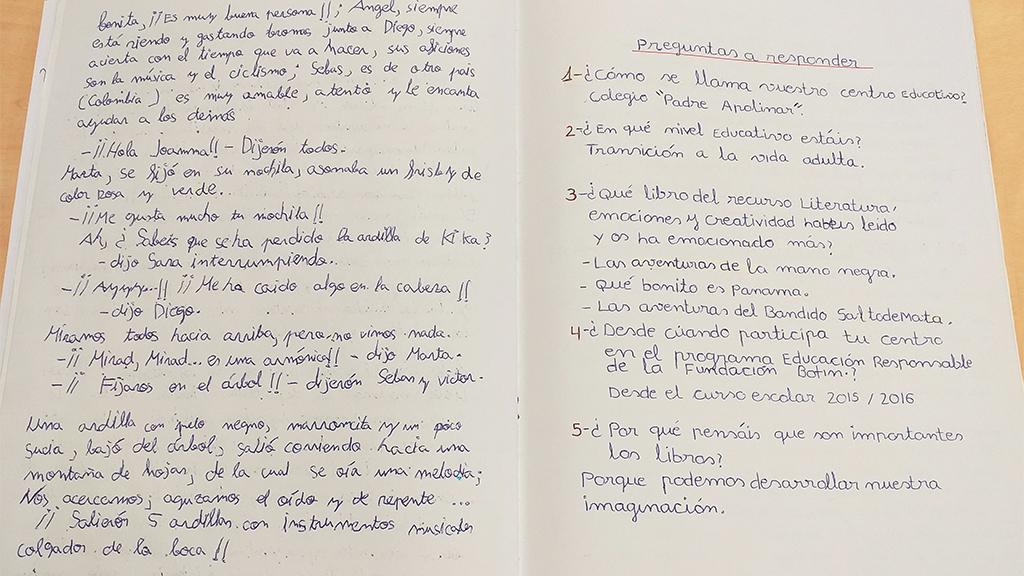 bonita, ¡¡Es muy buena persona!!; Angel, siempre
está riendo y gastando bromas junto a Diego, siempre
acierta con el tiempo que va a hacer, sus aficiones
son la música y el ciclismo; Sebas, es de otro país
(Colombia) es muy amable, atento y le encanta
ayudar a los demás
-¡¡Hola Joanma!! - Dijerón todos.
Marta, se fijó en su mochila, asomaba un frisby de
color rosa y verde..
-¡¡Me gusta mucho tu mochila!!
Ah, ¿Sabeis que se ha perdido la ardilla de Kika?
- dijo Sara interrumpiendo..
-¡¡ Ayyyy...!! ¡¡ Me ha caido algo en la cabeza!!
- dijo Diego.
Miramos todos hacia arriba, pero no vimos nada.
-¡¡ Mirad, Mirad... es una armónica!! - dijo Marta.
-¡¡ Fijaros en el árbol!! - dijerón Sebas y victor.
Una ardilla con pelo negro, marroncita y un poco
sucia, bajó del árbol, salió corriendo hacia una
montaña de hojas, de la cual se oía una melodia;
Nos acercamos; aguzamos el oído y de repente ...
¡¡ Salierón 5 ardillas con instrumentos musicales
colgados de la boca!!
Preguntas a responder
1-¿Cómo se llama vuestro centro Educativo?
Colegio "Padre Apolinar".
2-¿En qué nivel Educativo estáis?
Transición a la vida adulta.
3-¿Qué libro del recurso Literatura,
emociones y creatividad habeis leido
y os ha emocionado más?
- Las aventuras de la mano negra.
- Qué bonito es Panama.
- Las aventuras del Bandido Saltodemata.
4-¿Desde cúando participa tu centro
en el programa Educación Responsable
de la Fundación Botín.?
Desde el curso escolar 2015 / 2016
5-¿Por qué pensáis que son importantes
los libros?
Porque podemos desarrollar nuestra
imaginación.